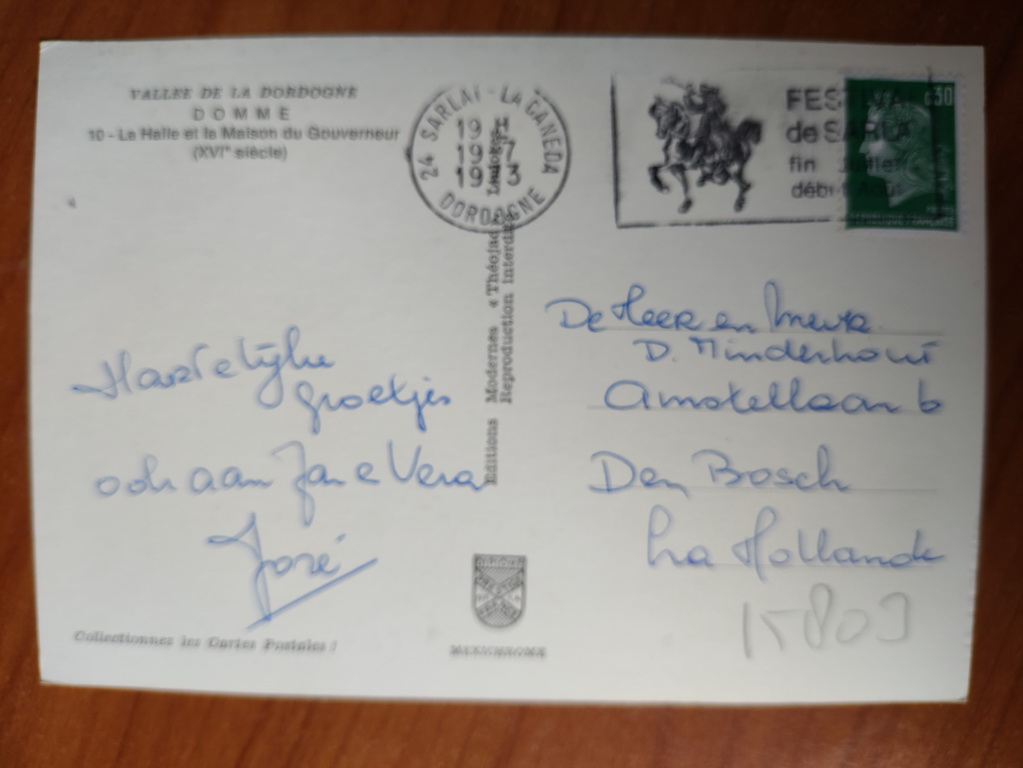 VALLEE DE LA DORDOGNE
DOMME
10 - La Halle et la Maison du Gouverneur
(XVIe siècle)
24 SARLAT - LA CANEDA
19 H
19 - 7
1973
DORDOGNE
FESTIVAL
de SARLAT
fin Juillet
début Août
0,30
REPUBLIQUE FRANÇAISE
Editions Modernes « Théojac »
Reproduction Interdite
Hartelijke
groetjes
ook aan Jan e Vera
José
De Heer en Mevr.
D. Minderhout
Amstellaan 6
Den Bosch
La Hollande
15803
Collectionnez les Cartes Postales !
MEXICHROME